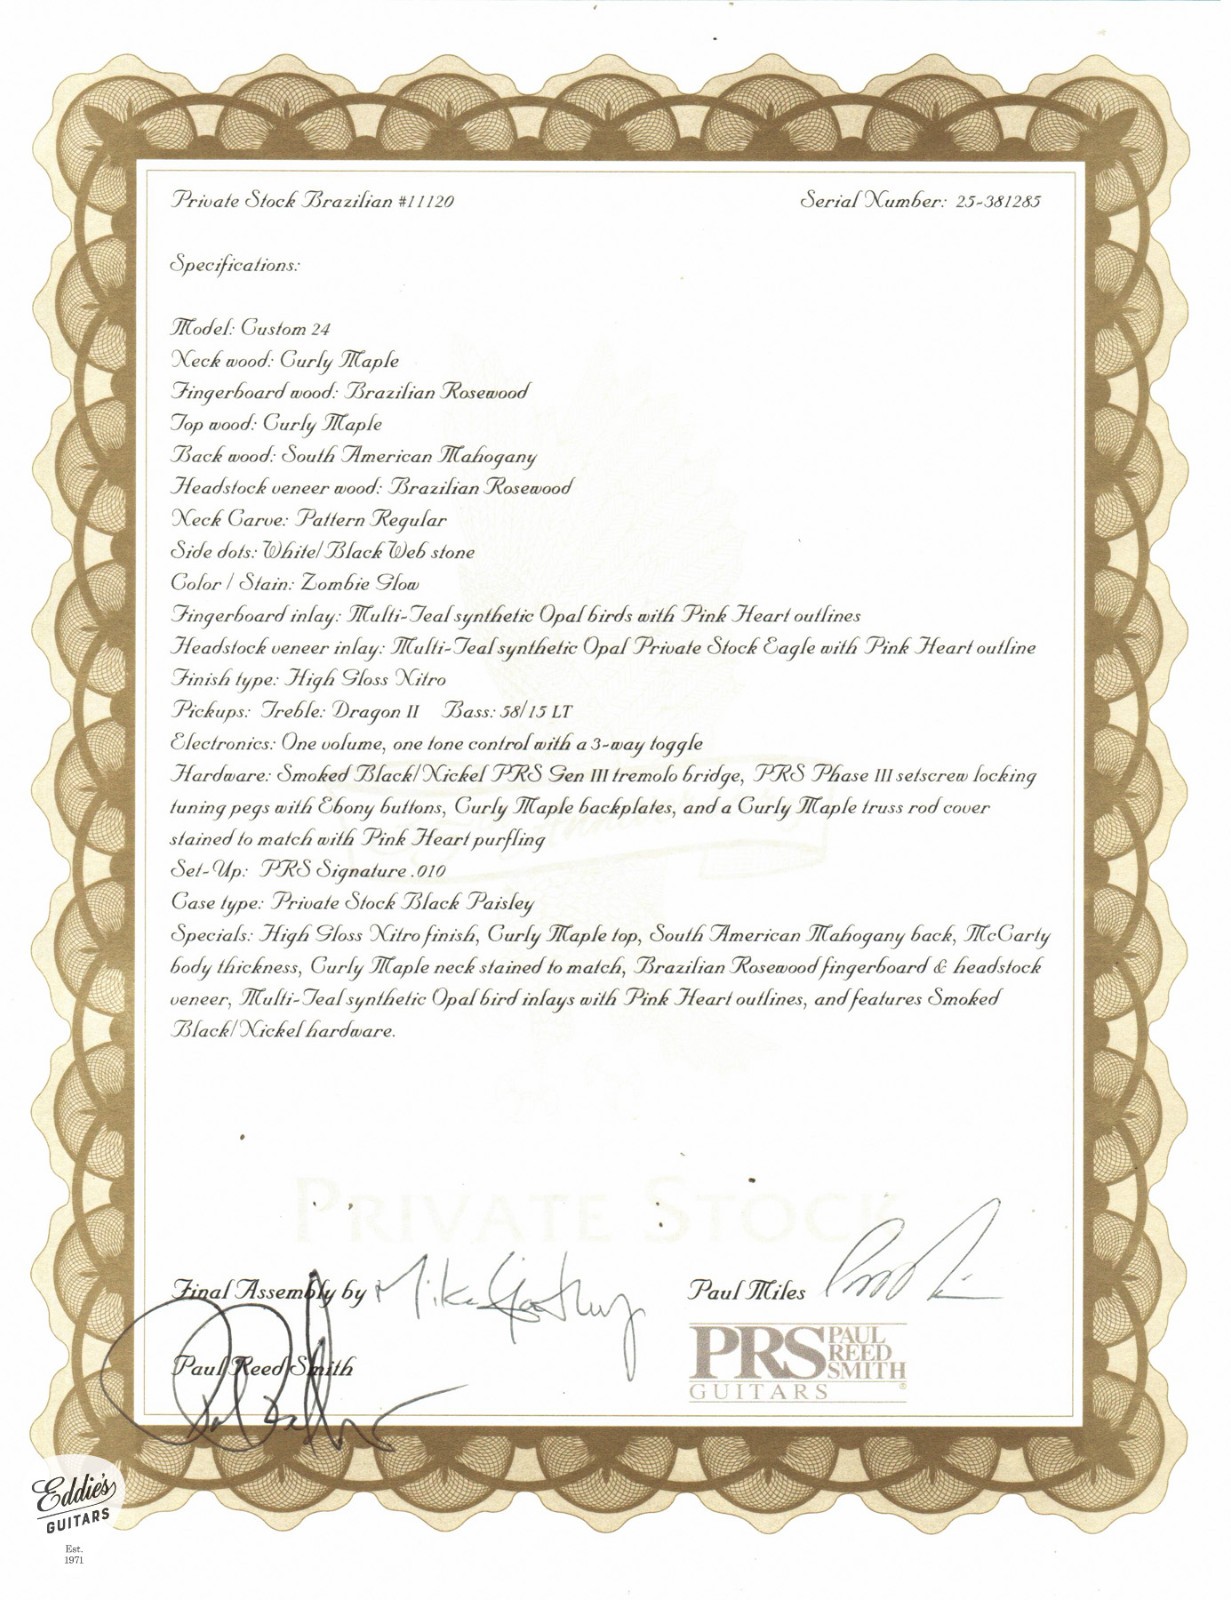 Private Stock Brazilian #11120 Serial Number: 25-381285
Specifications:
Model: Custom 24
Neck wood: Curly Maple
Fingerboard wood: Brazilian Rosewood
Top wood: Curly Maple
Back wood: South American Mahogany
Headstock veneer wood: Brazilian Rosewood
Neck Carve: Pattern Regular
Side dots: White/Black Web stone
Color / Stain: Zombie Glow
Fingerboard inlay: Multi-Teal synthetic Opal birds with Pink Heart outlines
Headstock veneer inlay: Multi-Teal synthetic Opal Private Stock Eagle with Pink Heart outline
Finish type: High Gloss Nitro
Pickups: Treble: Dragon II Bass: 58/15 LT
Electronics: One volume, one tone control with a 3-way toggle
Hardware: Smoked Black/Nickel PRS Gen III tremolo bridge, PRS Phase III setscrew locking
tuning pegs with Ebony buttons, Curly Maple backplates, and a Curly Maple truss rod cover
stained to match with Pink Heart purfling
Set-Up: PRS Signature .010
Case type: Private Stock Black Paisley
Specials: High Gloss Nitro finish, Curly Maple top, South American Mahogany back, McCarty
body thickness, Curly Maple neck stained to match, Brazilian Rosewood fingerboard & headstock
veneer, Multi-Teal synthetic Opal bird inlays with Pink Heart outlines, and features Smoked
Black/Nickel hardware.
PRIVATE STOCK
Final Assembly by Mike Paul Miles
Paul Reed Smith
PRS PAUL REED SMITH
GUITARS
Eddie's
GUITARS
Est.
1971